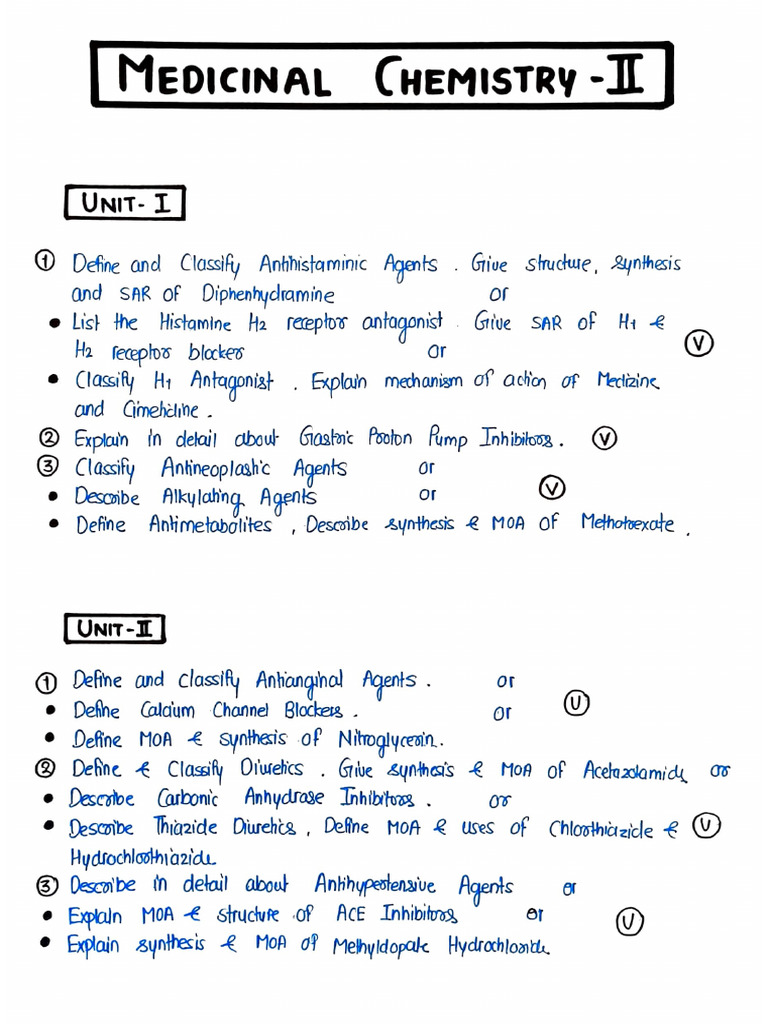 MEDICINAL CHEMISTRY - II
UNIT - I
① Define and Classify Antihistaminic Agents . Give structure, synthesis
and SAR of Diphenhydramine or
• List the Histamine H2 receptor antagonist . Give SAR of H1 &
H2 receptor blocker or Ⓥ
• Classify H1 Antagonist . Explain mechanism of action of Meclizine
and Cimetidine .
② Explain in detail about Gastric Proton Pump Inhibitors . Ⓥ
③ Classify Antineoplastic Agents or
• Describe Alkylating Agents or Ⓥ
• Define Antimetabolites , Describe synthesis & MOA of Methotrexate .
UNIT - II
① Define and Classify Antianginal Agents . or
• Define Calcium Channel Blockers . or Ⓤ
• Define MOA & synthesis of Nitroglycerin.
② Define & Classify Diuretics . Give synthesis & MOA of Acetazolamide or
• Describe Carbonic Anhydrase Inhibitors . or
• Describe Thiazide Diuretics , Define MOA & uses of Chlorthiazide & Ⓤ
Hydrochlorthiazide
③ Describe in detail about Antihypertensive Agents or
• Explain MOA & structure of ACE Inhibitors or Ⓤ
• Explain synthesis & MOA of Methyldopate Hydrochloride